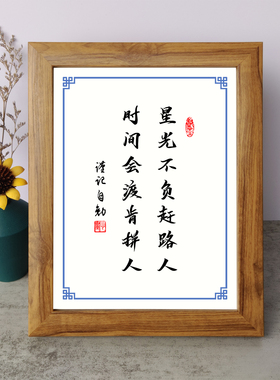 星光不负赶路人
时间会渡肯拼人
谨记自勉